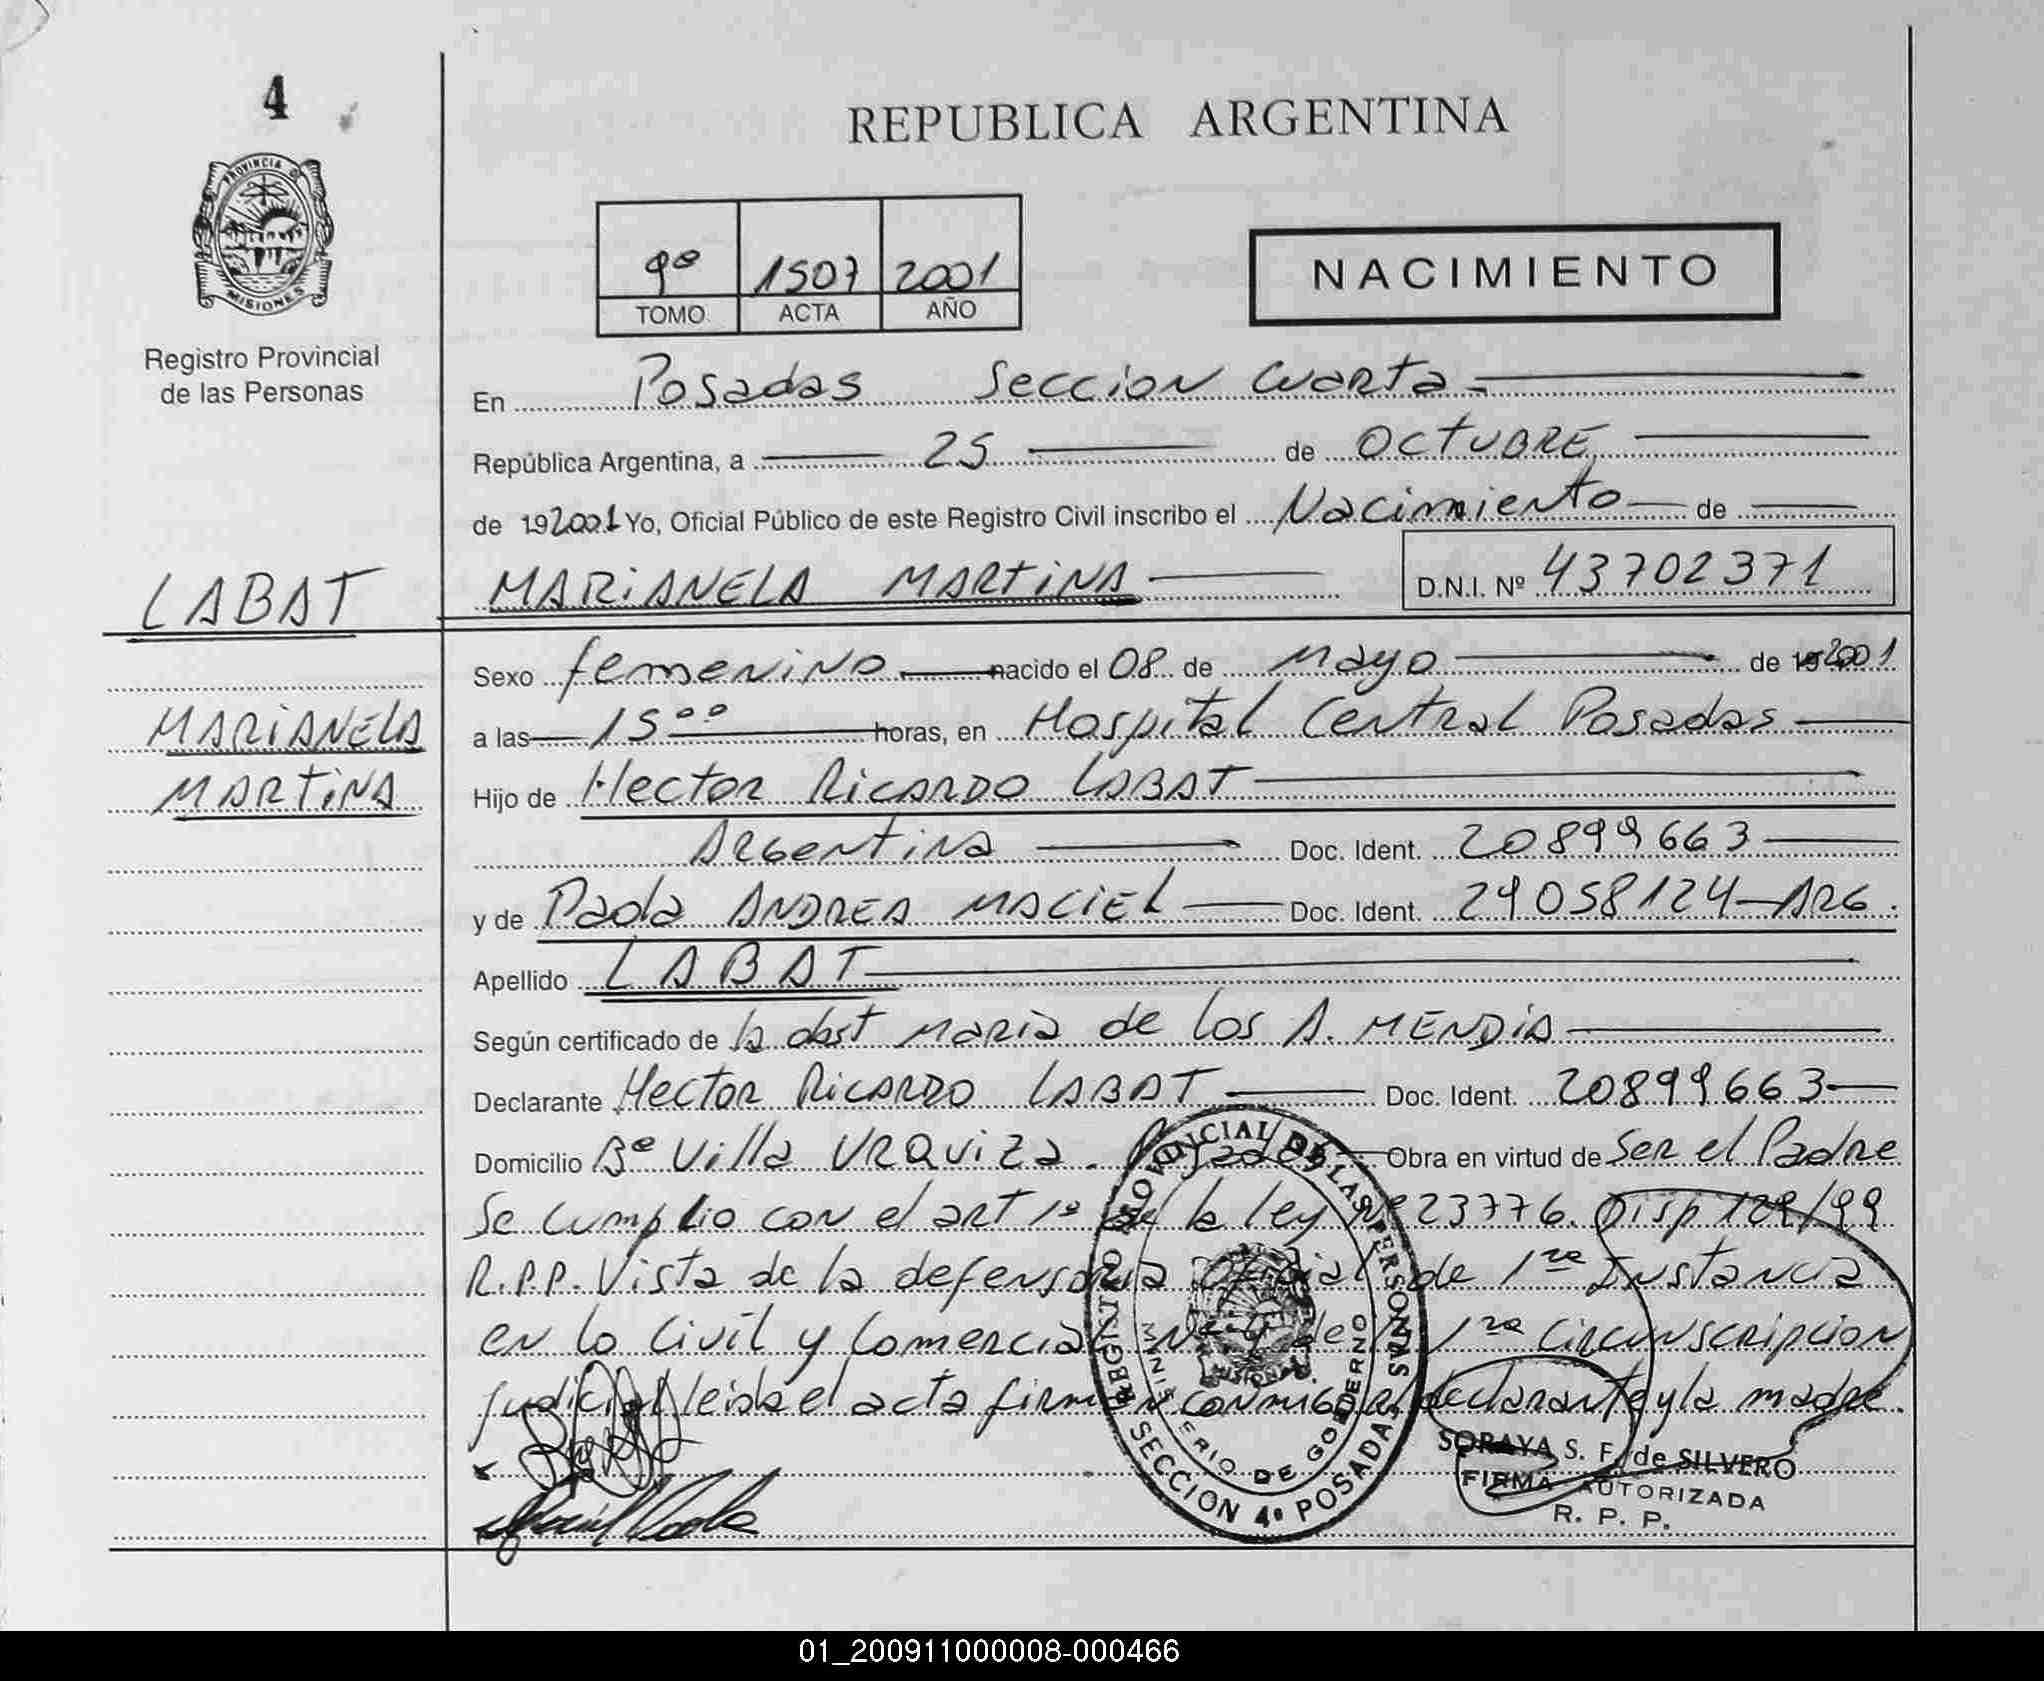 4
REPUBLICA ARGENTINA
PROVINCIA DE
MISIONES
Registro Provincial
de las Personas
9º 1507 2001
TOMO ACTA AÑO
NACIMIENTO
En Posadas Seccion Cuarta.-
República Argentina, a 25 de OCTUBRE
de 192001 Yo, Oficial Público de este Registro Civil inscribo el Nacimiento de
LABAT
MARIANELA MARTINA D.N.I. Nº 43702371
Sexo femenino nacido el 08 de Mayo de 192001
MARIANELA
a las 15⁰⁰ horas, en Hospital Central Posadas
MARTINA
Hijo de Hector Ricardo LABAT
Argentina Doc. Ident. 20899663
y de Paola ANDREA MACIEL Doc. Ident. 29058124-ARG.
Apellido LABAT
Según certificado de la obst Maria de los A. MENDIA
Declarante Hector Ricardo LABAT Doc. Ident. 20899663
Domicilio Bº Villa URQUIZA. Posadas Obra en virtud de Ser el Padre
Se cumplio con el art 1º de la ley Nº 23776. Disp 129/99
R.P.P. Vista de la defensoria oficial de 1ra Instancia
en lo Civil y Comercial de la 1ra Circunscripcion
judicial leida el acta firman conmigo el declarante y la madre.
REGISTRO PROVINCIAL DE LAS PERSONAS
MINISTERIO DE GOBIERNO
MISIONES
SECCION 4º POSADAS
SORAYA S. F. de SILVERO
FIRMA AUTORIZADA
R. P. P.
01_200911000008-000466